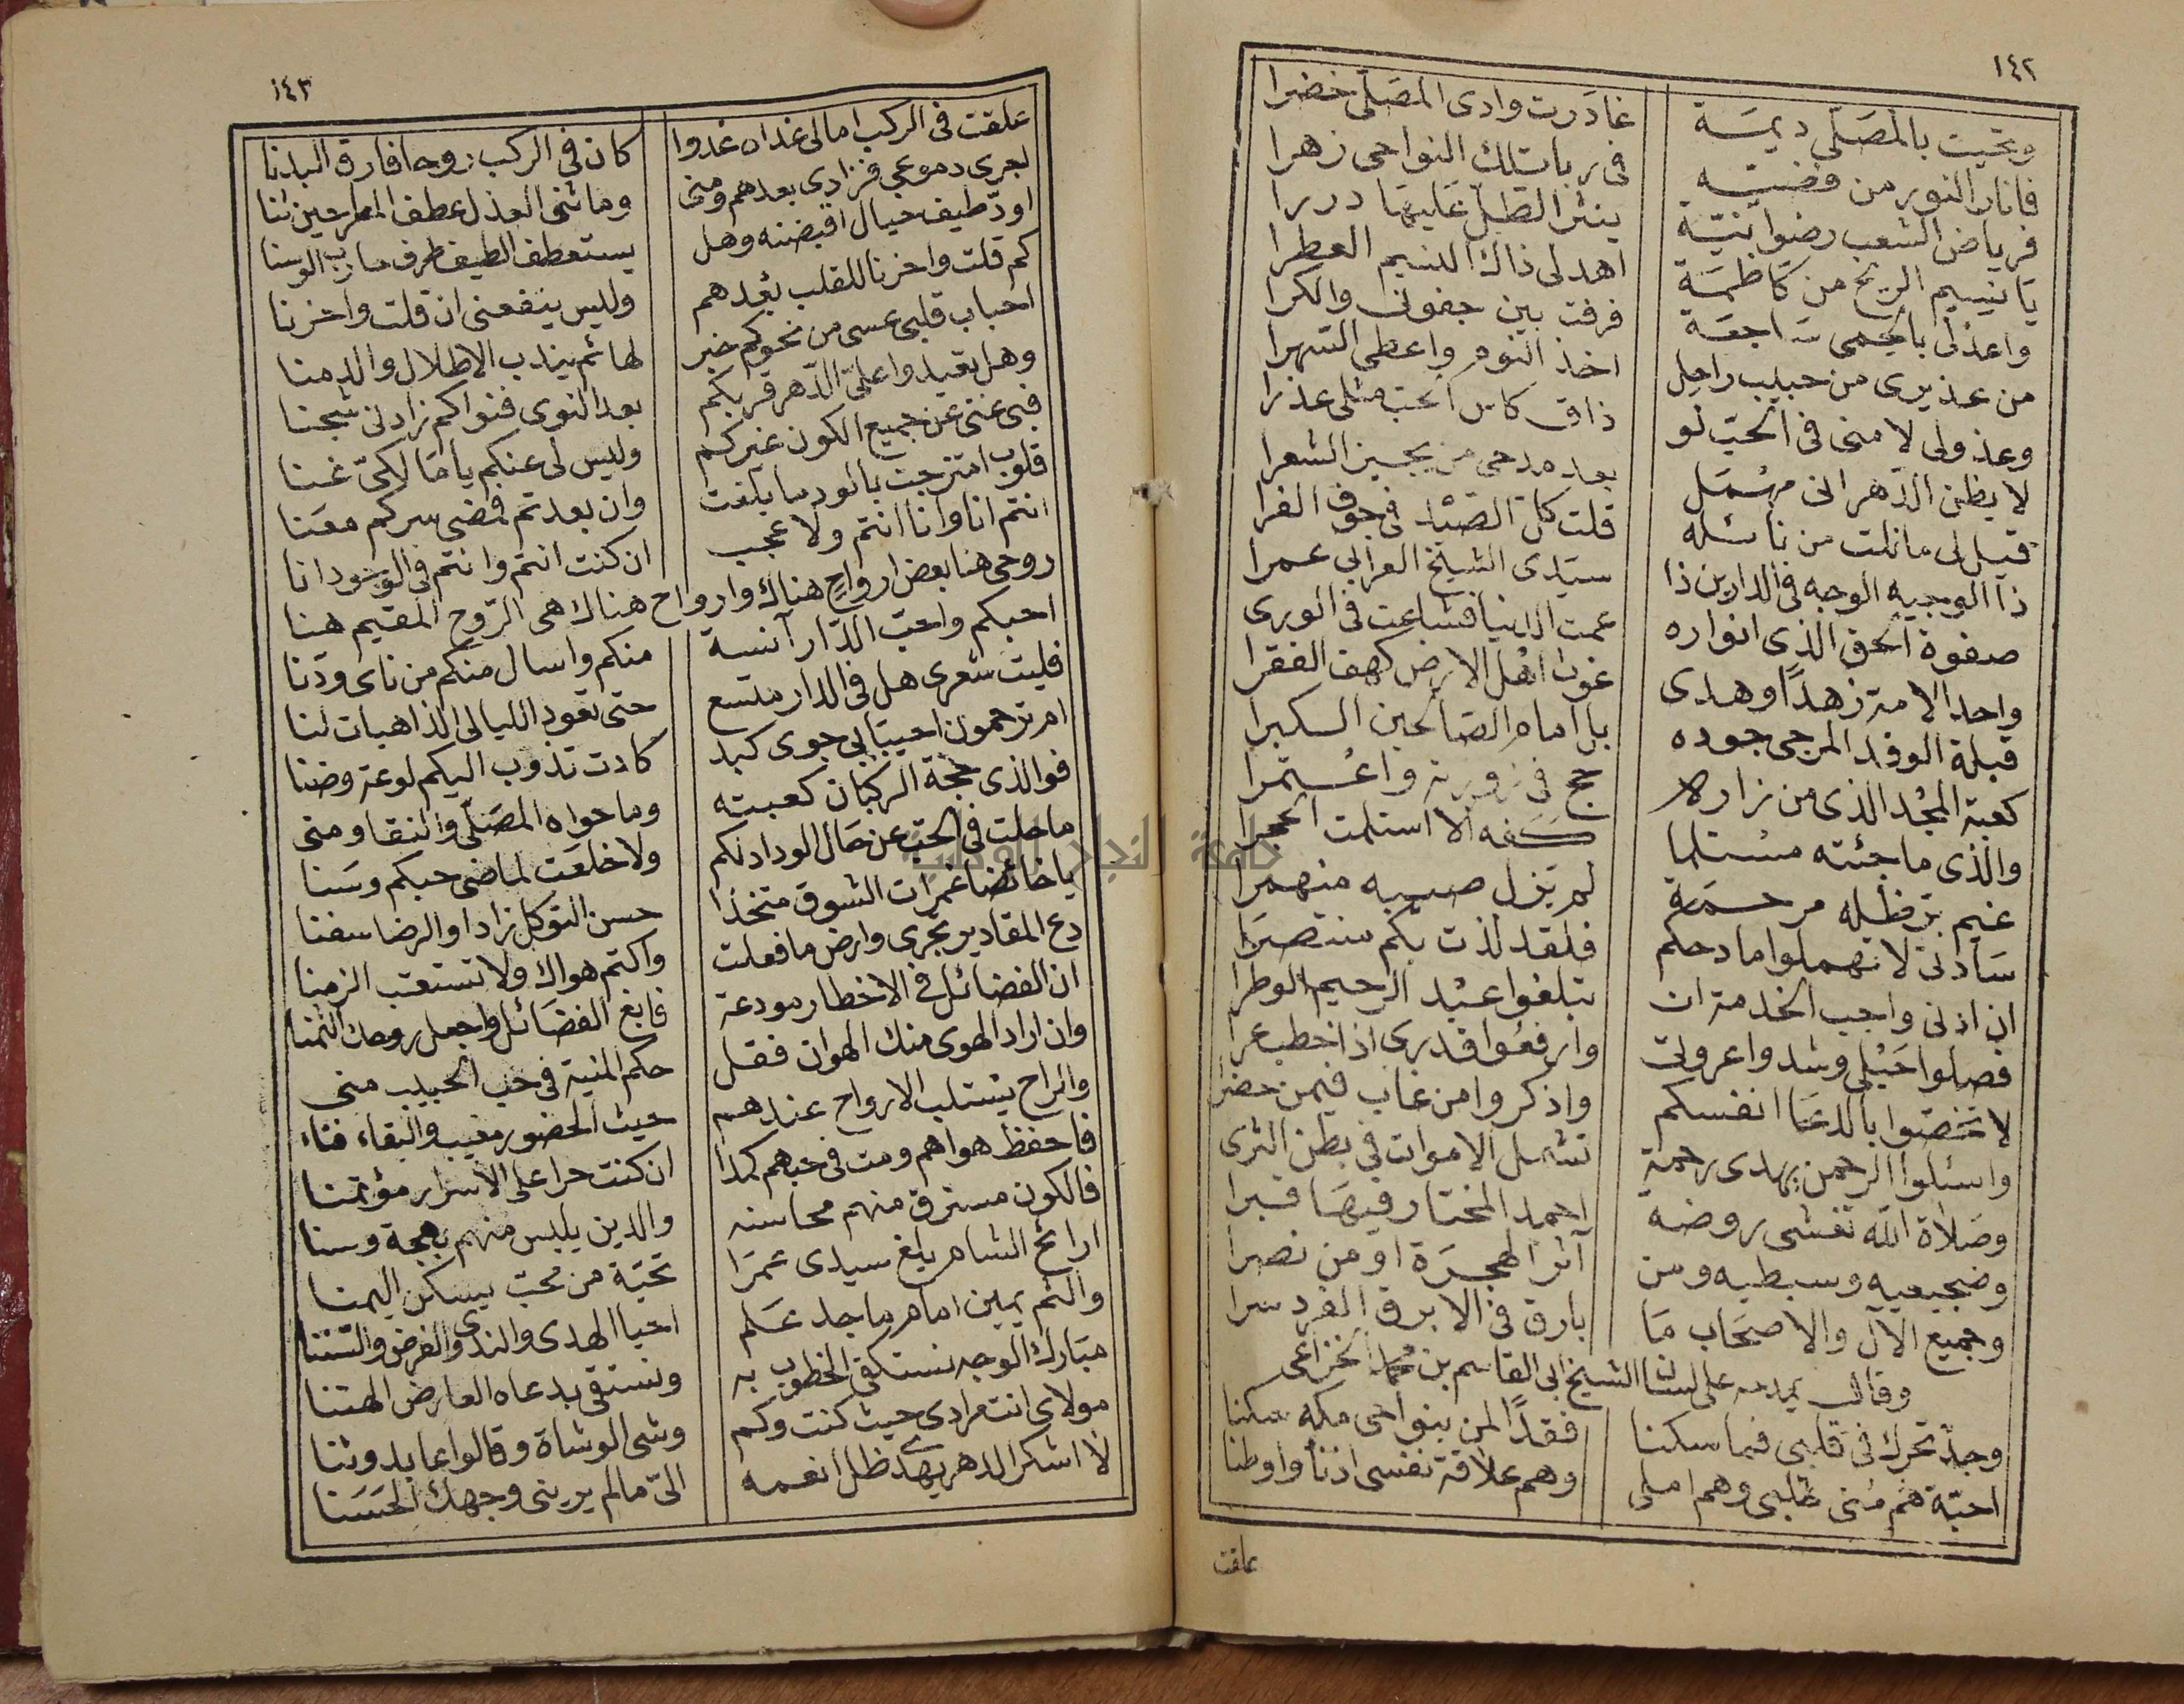 ١٤٢
وتحيت بالمصلى ديمة غادرت وادى المصلى خضرا
فانار النور من فضته فى ربا تلك النواحى زهرا
فرياض الشعب رضوانية ينثر الطل عليها دررا
يا نسيم الريح من كاظمة اهد لى ذاك النسيم العطرا
واعذلى بالحمى ساجعة فرقت بين جفونى والكرا
من عذيرى من حبيب راحل اخذ النوم واعطى السهرا
وعذولى لامنى فى الحب لو ذاق كاس الحب مثلى عذرا
لا يظن الدهر انى مهمل بعد مدحى من يجيز الشعرا
قيل لى ما نلت من نائله قلت كل الصيد فى جوف الفرا
ذا الوجيه الوجه فى الدارين ذا سيدى الشيخ العرابى عمرا
صفوة الحق الذى انواره عمت الدنيا فشاعت فى الورى
واحد الامة زهدا وهدى غوث اهل الارض كهف الفقرا
قبلة الوفد المرجى جوده بل امام الصالحين الكبرا
كعبة المجد الذى من زاره حج فى زورته واعتمرا
والذى ما جئته مستلما كفه الا استلمت الحجرا
غيم بر ظله مرحمة لم يزل صيبه منهمرا
سادتى لا تهملوا مادحكم فلقد لذت بكم منتصرا
ان ادنى واجب الخدمة ان تبلغوا عبد الرحيم الوطرا
فصلوا حبلى وشدوا عروتى وارفعوا قدرى اذا خطب عرا
لا تخصوا بالدعا انفسكم واذكروا من غاب فيمن حضرا
واسئلوا الرحمن يهدى رحمة تشمل الاموات فى بطن الثرى
وصلاة الله تغشى روضة احمد المختار فيها قبرا
وضجيعيه وسبطيه ومن آثر الهجرة او من نصرا
وجميع الآل والاصحاب ما بارق فى الابرق الفرد سرا
وقال يمدحه على لسان الشيخ ابى القاسم بن محمد الخزاعى
وجد تحرك فى قلبى فما سكنا فقدا لمن بنواحى مكة سكنا
احبة هم منى قلبى وهم املى وهم علاقة نفسى اذناً واوطنا
علقت
١٤٣
علقت فى الركب امالى غداة غدوا كان فى الركب روحا فارق البدنا
اجرى دموعى فزادى بعدهم ومنى وما ثنى العذل عطف المطرحين ثنا
اود طيف خيال اقبضنه وهل يستعطف الطيف طرف حارب الوسنا
كم قلت واحزنا للقلب بعدهم وليس ينفعنى ان قلت واحزنا
احباب قلبى عسى من نحوكم خبر لهائم يندب الاطلال والدمنا
وهل تعيدوا على الدهر قربكم بعد النوى فنواكم زادنى شجنا
فبى غنى عن جميع الكون غيركم وليس لى عنكم يا مالكىّ غنا
قلوب امتزجت بالود ما بلغت وان بعدتم فمضى سركم معنا
انتم انا وانا انتم ولا عجب ان كنت انتم وانتم فى الوجود انا
روحى هنا بعض ارواح هناك وارواح هناك هى الروح المقيم هنا
احبكم واحب الدار آنسة منكم واسال منكم من ناى ودنا
فليت شعرى هل فى الدار متسع حتى تعود الليالى الذاهبات لنا
ام ترحمون احيبابى جوى كبد كادت تذوب اليكم لوعة وضنا
فوالذى حجة الركبان كعبته وما حواه المصلى والنقا ومنى
ما حلت فى الحب عن حال الوداد لكم ولا خلعت لماضى حبكم وسنا
يا خائضا غمرات الشوق متخذا حسن التوكل زادا والرضا سفنا
دع المقادير تجرى وارض ما فعلت واكتم هواك ولا تستعتب الزمنا
ان الفضائل فى الاخطار مودعة فابغ الفضائل واجعل روحك الثمنا
وان اراد الهوى منك الهوان فقل حكم المنية فى حب الحبيب منى
والراح يستلب الارواح عندهم حيث الحضور مغيب والبقاء فناء
فاحفظ هواهم ومت فى حبهم كمدا ان كنت حرا على الاسرار مؤتمنا
فالكون مسترق منهم محاسنه والدين يلبس منهم بهجة وسنا
ارائح الشام بلغ سيدى عمرا تحية من محب يسكن اليمنا
والثم يمين امام ماجد علم احيا الهدى والندى والفرض والسننا
مبارك الوجه نستكفى الخطوب به ونستقى بدعاه العارض الهتنا
مولاى انت مرادى حيث كنت وكم وشى الوشاة وقالوا عابد وثنا
لا اشكر الدهر يهدى ظل انعمه الىّ ما لم يرينى وجهك الحسنا
جامعة النجاح الوطنية